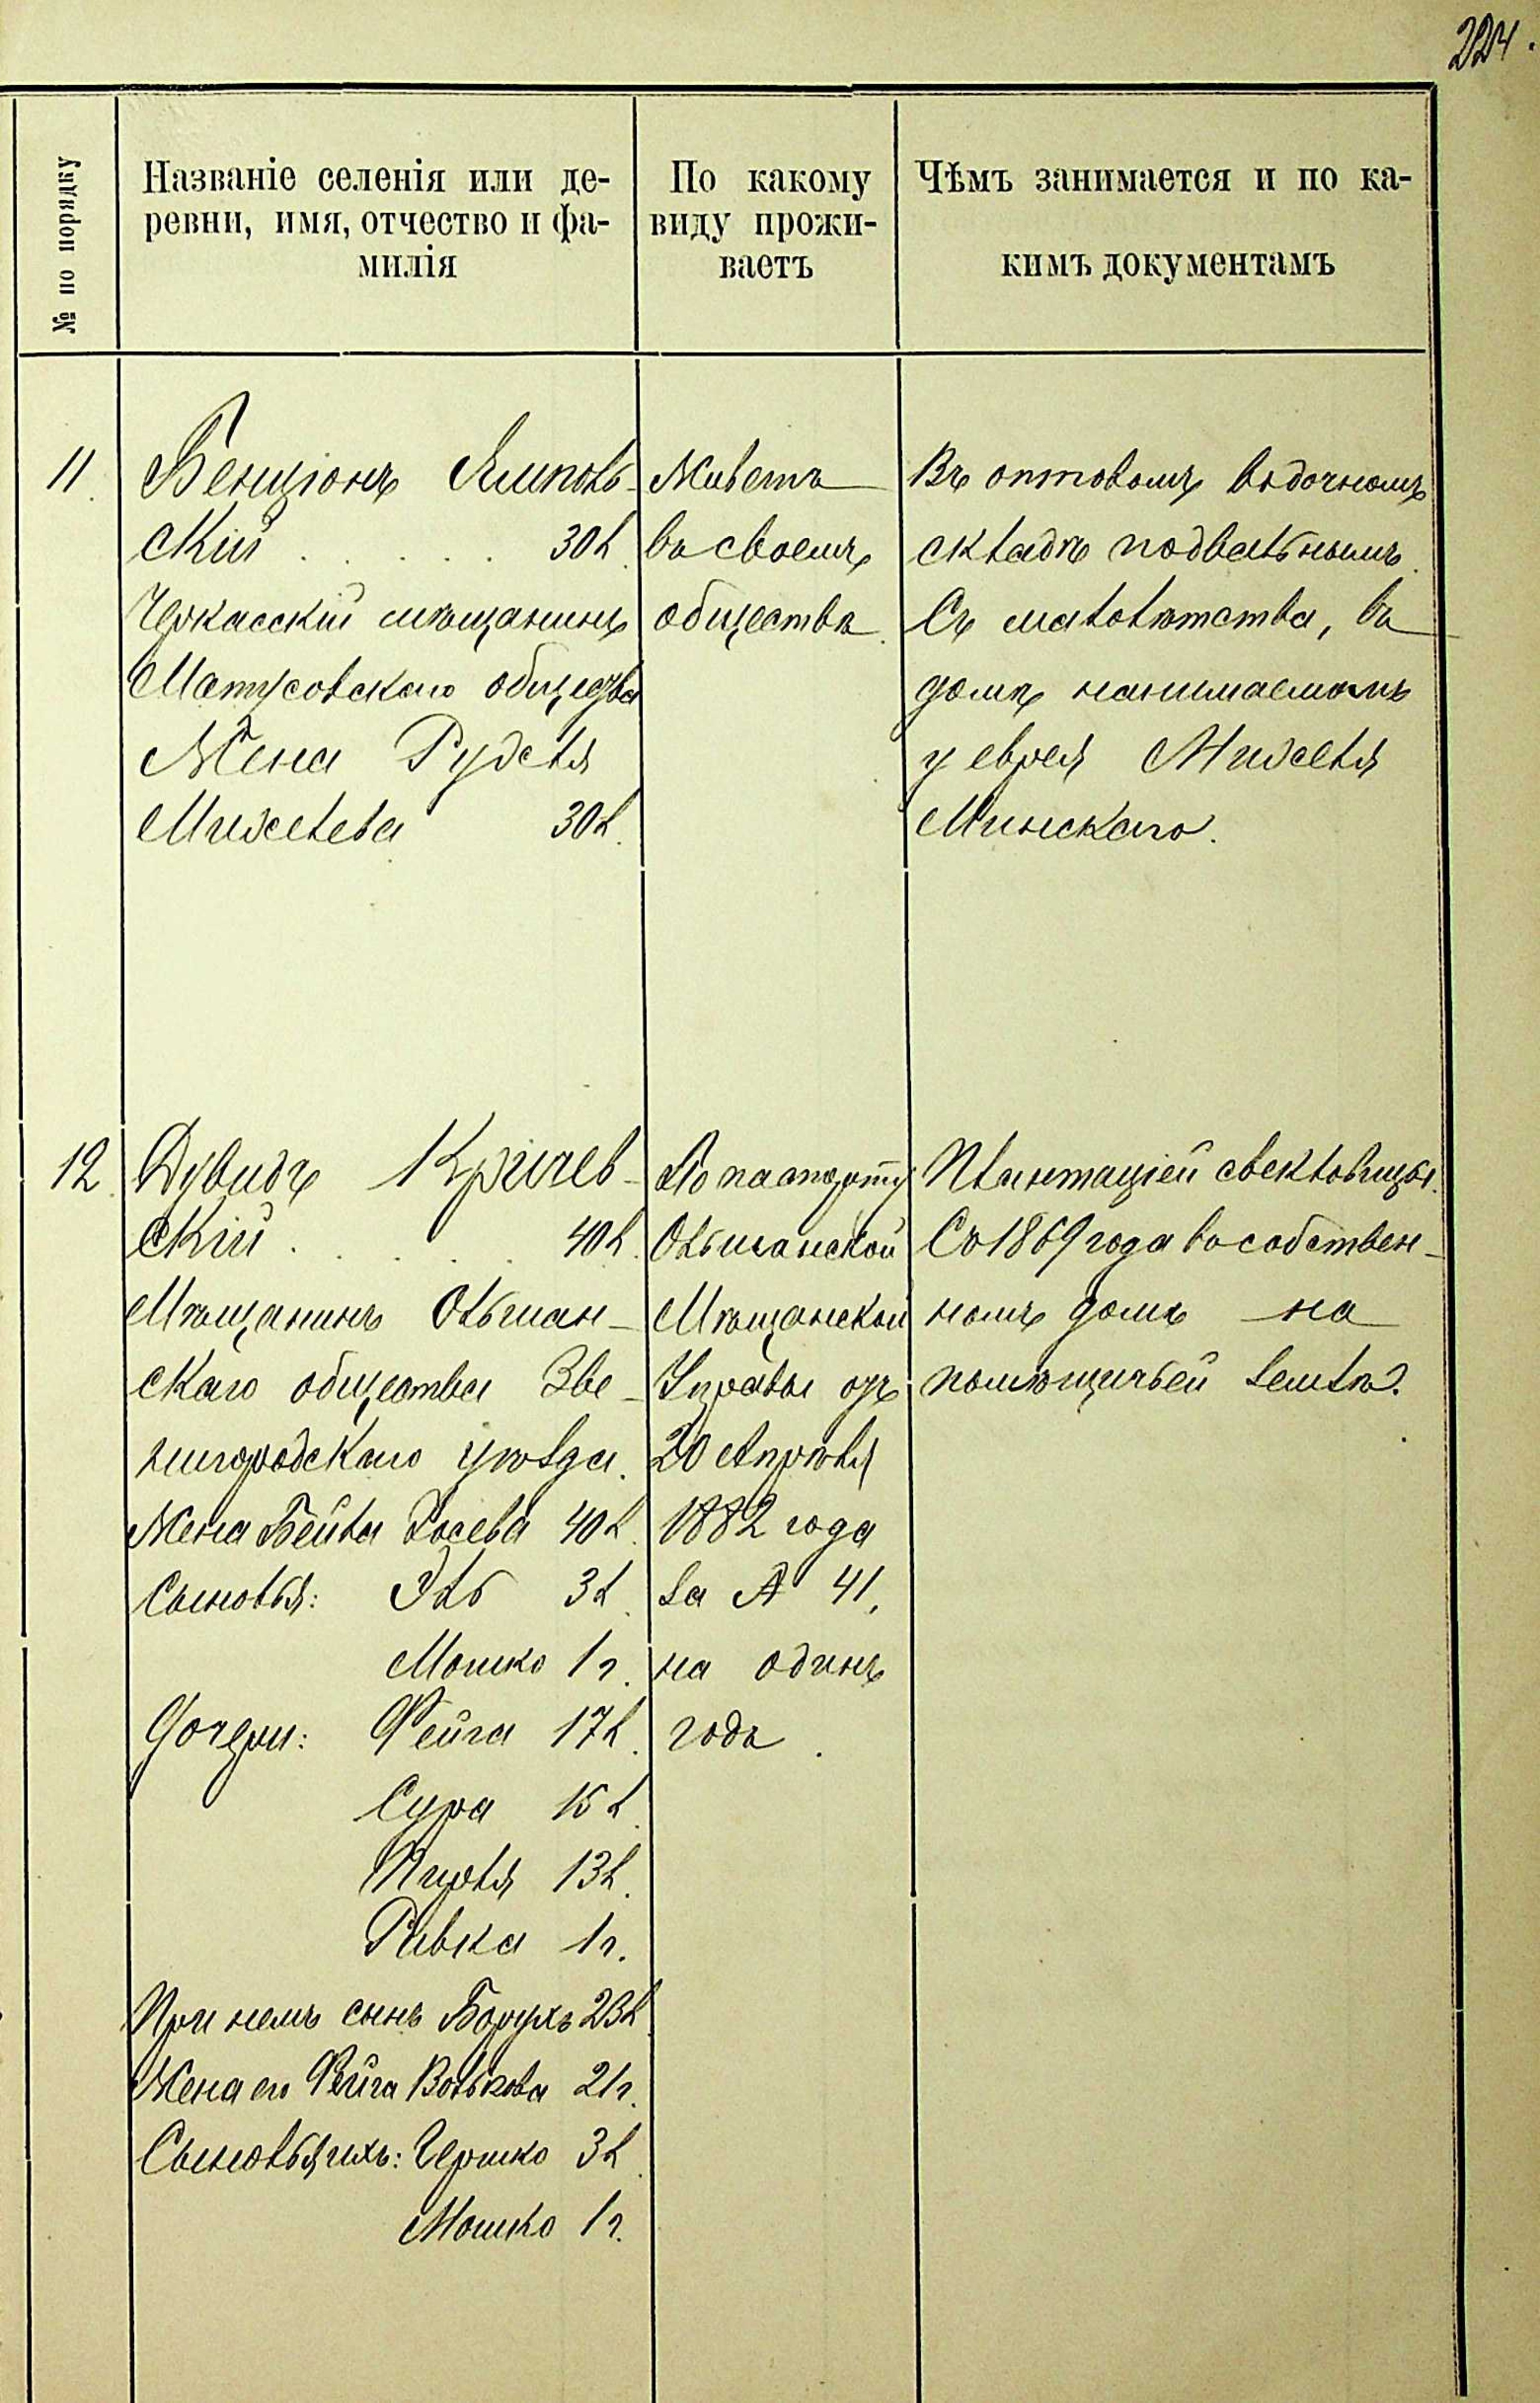 224.
№ по порядку
Названіе селенія или де-
ревни, имя, отчество и фа-
милія
По какому
виду прожи-
ваетъ
Чѣмъ занимается и по ка-
кимъ документамъ
11.
Бенціонъ Ямполь-
скій . . . . 30 л.
Черкасскій мѣщанинъ
Матусовскаго общества
Жена Рудсля
Мижелева 30 л.
Живетъ
въ своемъ
обществѣ.
Въ оптовомъ водочномъ
складѣ подвальнымъ.
Съ малолѣтства, въ
домѣ нанимаемомъ
у еврея
Минскаго.
12.
Дувидъ Кричев-
скій . . . . 40 л.
Мѣщанинъ Ольшан-
скаго общества Зве-
нигородскаго уѣзда.
Жена Бейла Іосева 40 л.
Сыновья: Эль 3 л.
Мошко 1 г.
Дочери: Фейга 17 л.
Сура 15 л.
Пирля 13 л.
Ривка 1 г.
При немъ сынъ Борухъ 23 л.
Жена его Фейга Волькова 21 г.
Сыновья ихъ: Гершко 3 л.
Мошко 1 г.
По паспорту
Ольшанской
Мѣщанской
Управы отъ
20 Апрѣля
1882 года
за № 41,
на одинъ
годъ.
Плантаціей свекловицы.
Съ 1869 года въ собствен-
номъ домѣ на
помѣщичьей землѣ.